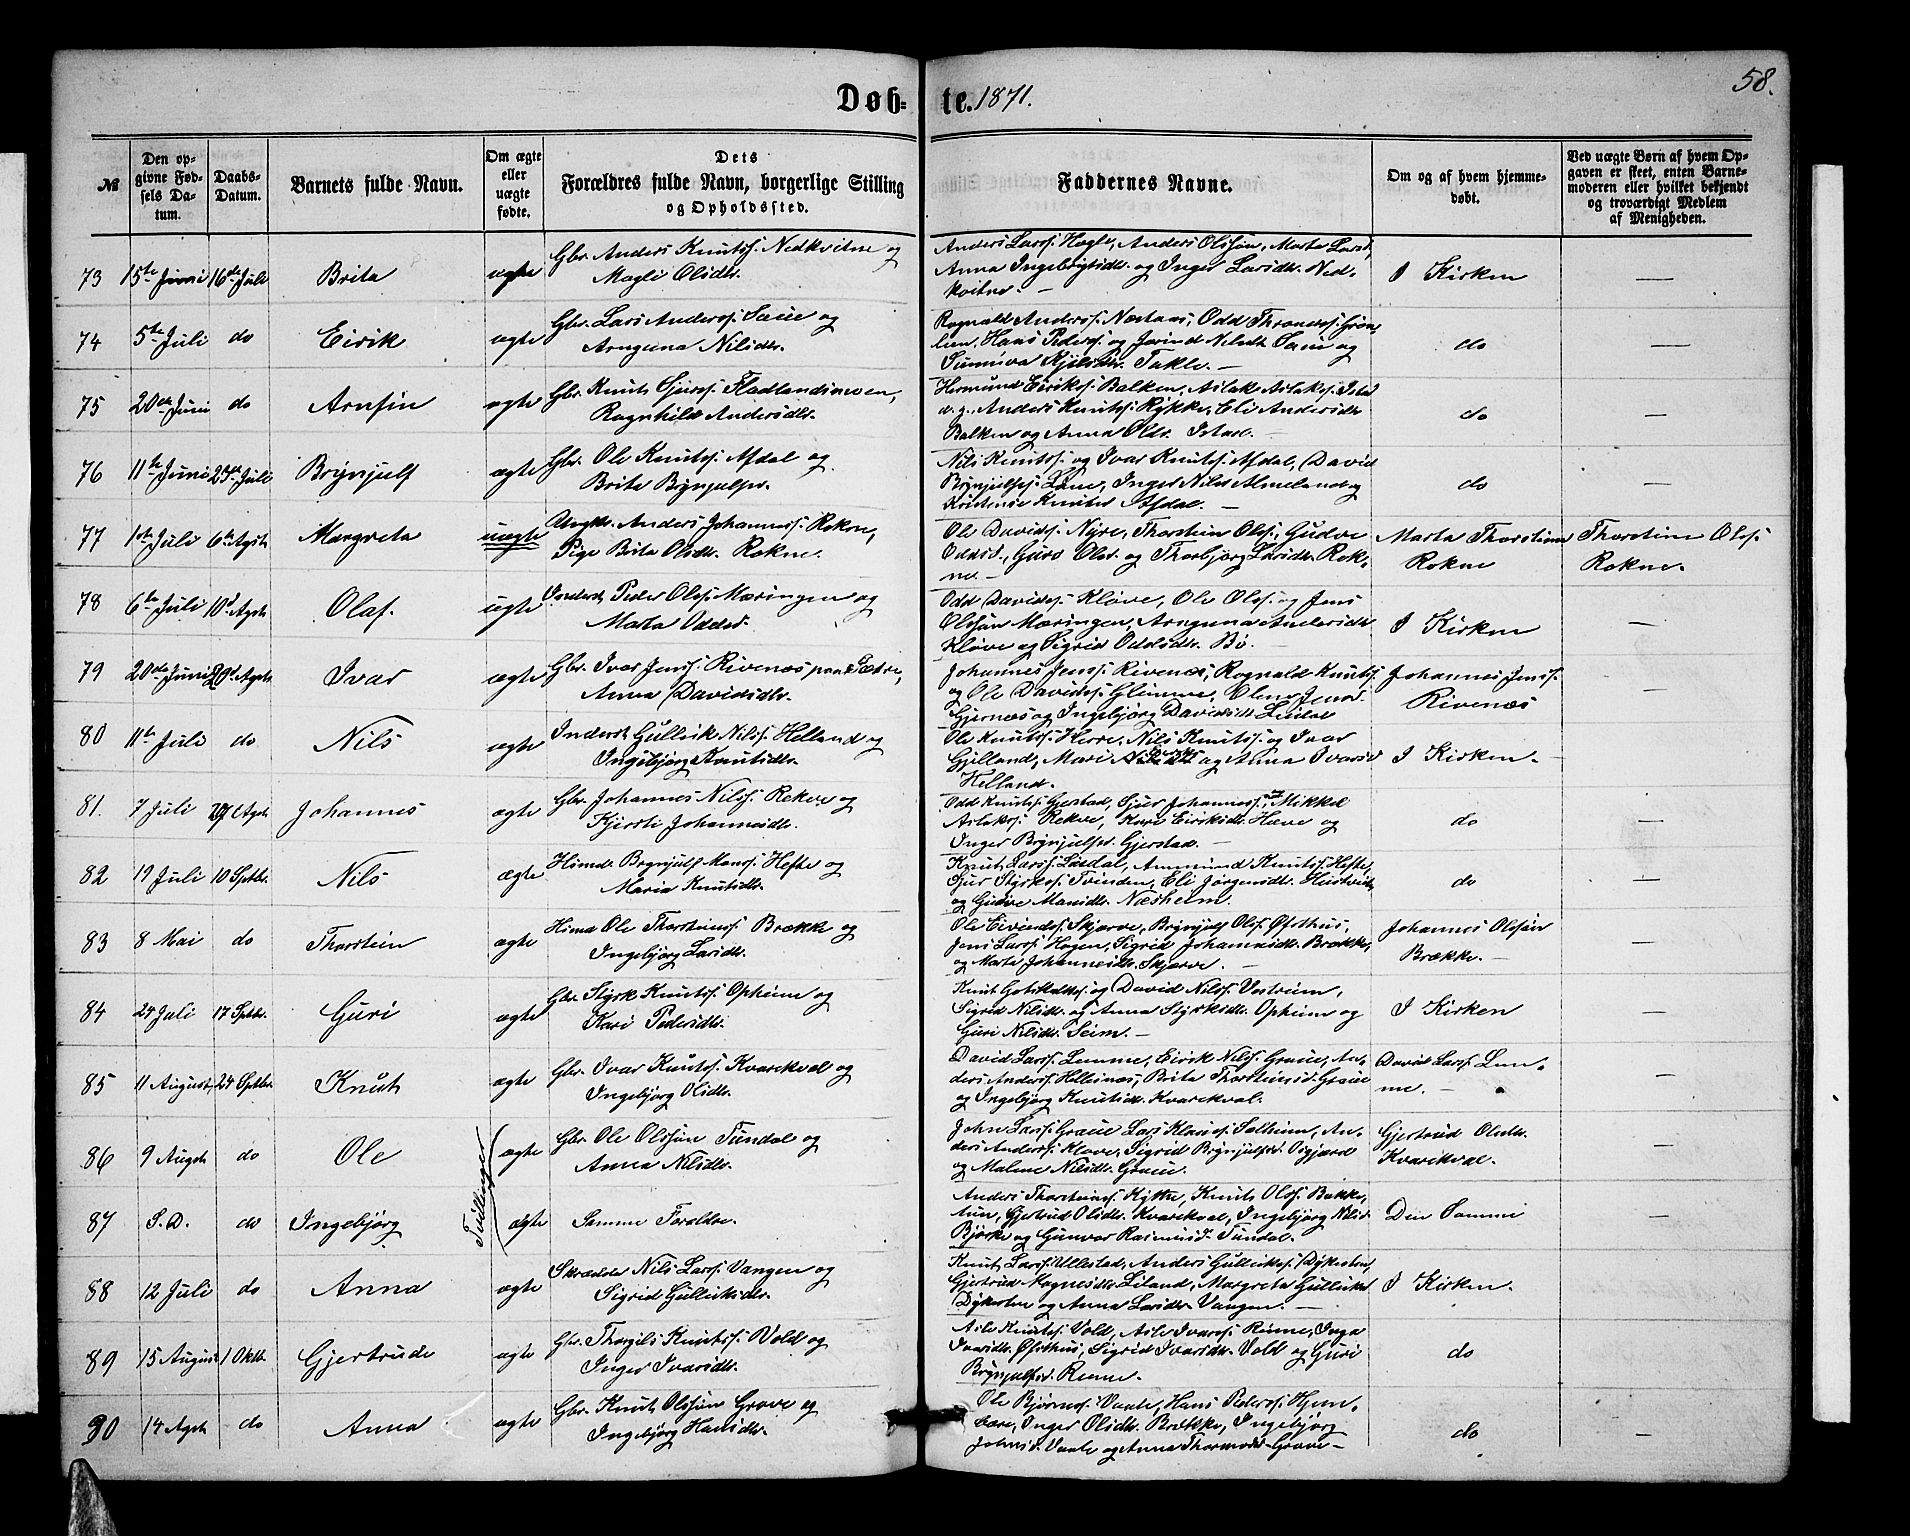 Døb=te. 1871.
58.
№
Den opgivne Fødsels Datum.
Daabs-Datum.
Barnets fulde Navn.
Om ægte eller uægte fødte.
Dets Forældres fulde Navn, borgerlige Stilling og Opholdssted.
Faddernes Navne.
Om og af hvem hjemmedøbt.
Ved uægte Børn af hvem Opgaven er skeet, enten Barnemoderen eller hvilket bekjendt og troværdigt Medlem af Menigheden.
73 15de Juni 16de Juli Brita ægte Gbr. Anders Knutss. Nedkvitne og
Magli Olsdtr.
Anders Larss. Hægle, Anders Olssøn, Marta Larsd,
Anna Ingebrigtsdtr. og Inger Larsdtr. Ned-
kvitne. —
I Kirken —
74 5te Juli do Eirik ægte Gbr. Lars Anderss. Saue og
Arnguna Nilsdtr.
Rognald Anderss. Næstaas, Odd Throndss. Grøn-
lien, Hans Pederss. og Jorind Nilsdt Saue og
Sunniva Kjelsdtr. Takle. —
do —
75 20de Juni do Arnfin ægte Gbr. Knut Sjurss. Fladlandsmoen,
Ragnhild Andersdtr.
Hermund Eirikss. Balken, Aslak Aslakss. Istad
o. g. Anders Knutss. Rykke, Eli Andersdtr
Balken og Anna Olsdr. Istad. —
do —
76 11te Juni 23de Juli Brynjulf ægte Gbr. Ole Knutss. Afdal og
Brita Brynjulfsd.
Nils Knutss. og Ivar Knutss. Afdal, David
Brynjulfss. Lane, Inger Nilsd Almeland og
Kristense Knutsd Afdal. —
do —
77 1ste Juli 6te Agst. Margreta uægte Ungkr. Anders Johanness. Rokne,
Pige Brita Olsdtr. Rokne.
Ole Davidss. Nyre, Thorstein Olss., Gudve
Oddsd., Guro Olsd. og Thorbjørg Larsdtr. Rok-
ne. —
Marta Thorsteinsd
Rokne
Thorstein Olss.
Rokne.
78 6te Juli 10d Agst. Olaf. ægte Inderst Peder Olss. Mæringen og
Marta Oddsd.
Odd Davidss. Kløve, Ole Olss. og Jens
Olssøn Mæringen, Arnguna Andersdtr
Kløve og Sigrid Oddsdtr. Bø.
I Kirken —
79 20de Juni Agst. Ivar ægte Gbr. Ivar Jenss. Rivenæs paa Sætre,
Anna Davidsdtr.
Johannes Jenss. Rivenæs, Rognald Knutss.
og Ole Davidss. Glimme, Olene Jensd.
Gjernæs og Ingebjørg Davidsdtr
Johannes Jenss.
Rivenæs
—
80 11te Juli do Nils ægte Inderst Gullvik Nilss. Helland og
Ingebjørg Knutsdtr.
Ole Knutss. Herre, Nils Knutss. og Ivar
Gjelland, Mari og Anna Ivarsd
Helland.
I Kirken. —
81. 7 Juli Agst Johannes ægte Gbr. Johannes Nilss. Rekve og
Kjersti Johannesdtr.
Odd Knutss. Gjerstad, Sjur Johanness. og Mikkel
Aslakss. Rekve, Kari Eiriksdtr. Hæve og
Inger Brynjulfsd. Gjerstad. —
do —
82 19 Juli 10 Septbr. Nils ægte Hsmd. Brynjulf Monss. Hefte og
Maria Knutsdtr.
Knut Larss. Lærdal, Ammund Knutss. Hefte,
Sjur Styrkss. Tvinden, Eli Jørgensdtr. Hustveit,
og Gudve Mansdtr. Næsheim.
do —
83 8 Mai do Thorstein ægte Hsmd Ole Thorsteinss. Brække og
Ingebjørg Larsdtr.
Ole Eivindss. Skjerve, Brynjulf Olss. Øfsthus,
Jens Larss. Hagen, Sigrid Johannesdtr. Brække,
og Marta Johannesdtr. Skjerve. —
Johannes Olssøn
Brække. —
—
84 24 Juli 17 Septbr. Guri ægte Gbr. Styrk Knutss. Opheim og
Kari Pedersdtr.
Knut Gotskalkss. og David Nilss. Vestreim,
Sigrid Nilsdtr. og Anna Styrksdtr. Opheim og
Guri Nilsdtr. Seim. —
I Kirken —
85 11 August 24 Septbr. Knut ægte Gbr. Ivar Knutss. Kvarekval og
Ingebjørg Olsdtr.
David Larss. Lemme, Eirik Nilss. Graue, An-
ders Anderss. Hellesnæs, Brita Thorsteinsd. Graue
og Ingebjørg Knutsdtr. Kvarekval.
David Larss. Lem-
me. —
—
Tvillinger
86 9 Augst do Ole ægte Gbr. Ole Olssøn Tundal og
Anna Nilsdtr.
John Larss. Graue Lars Klauss. Sætheim, An-
ders Anderss. Kløve, Sigrid Brynjulfsd.
og Malene Nilsdtr. Graue.
Gjertrud Olsdtr.
Kvarekval.
—
87 S. D. do Ingebjørg ægte Samme Forældre.
Anders Thorsteinss. Kyte, Knut Olss. Bakke,
tun, Gjertrud Olsdtr. Kvarekval, Ingebjørg Nilsd.
Bjørke og Gunvor Rasmusd. Tundal.
Den Samme —
88 12 Juli do Anna ægte Skrædder Nils Larss. Vangen og
Sigrid Gulleiksdtr.
Knut Larss. Ullestad, Anders Gulleikss. Dykesten,
Gjertrud Magnesdtr. Leiland, Margreta Gulleiksd
Dykesten og Anna Larsdtr. Vangen. —
I Kirken. —
89 15 August 1 Oktb. Gjertrude ægte Gbr. Thorgils Knutss. Vold og
Inger Ivarsdtr.
Asle Knutss. Vold, Asle Ivarss. Rinne, Inga
Ivarsdtr. Øfsthus, Sigrid Ivarsdtr. Vold og Guri
Brynjulfsd. Rinne.
do —
90 14 Agst do Anna ægte Gbr. Knut Olssøn Grove og
Ingebjørg Hansdtr.
Ole Bjørnss. Vaale, Hans Pederss. Hjem-
bære, Inger Olsdtr. Brække, Ingebjørg
Johnsd. Vaale og Anna Thormodsd. Grove —
do —